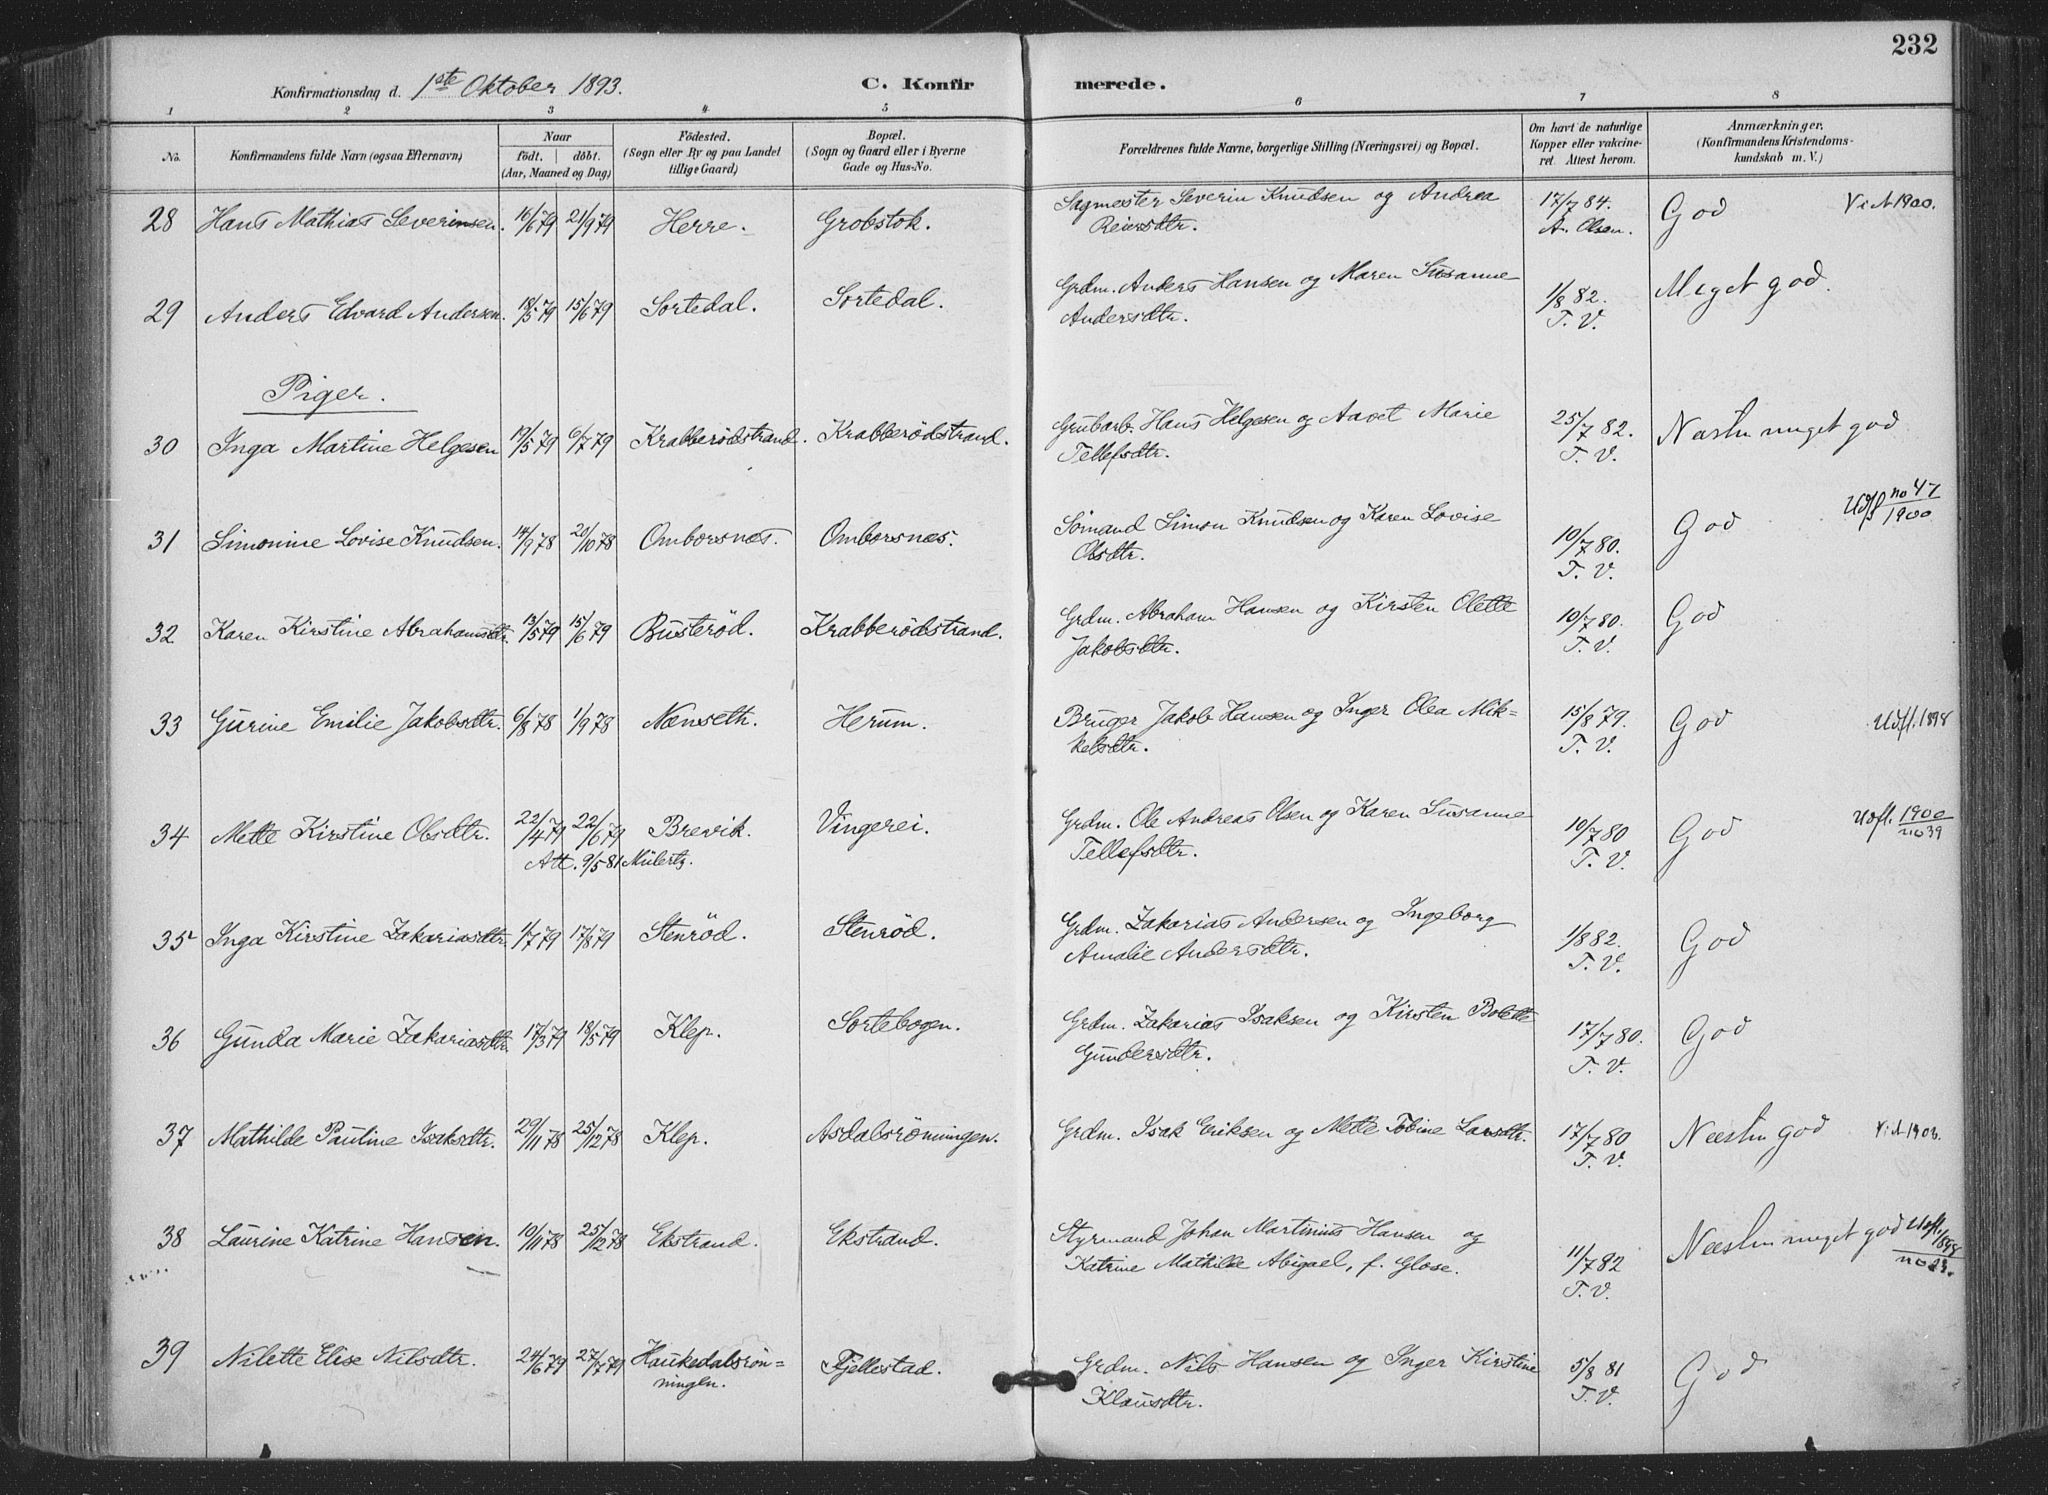 232
Konfirmationsdag d. 1ste Oktober 1893.
C. Konfirmerede.
1 2 3 4 5 6 7 8
No.
Konfirmandens fulde Navn (ogsaa Efternavn)
Naar
födt. döbt.
(Aar, Maaned og Dag)
Födested.
(Sogn eller By og paa Landet
tillige Gaard)
Bopæl.
(Sogn og Gaard eller i Byerne
Gade og Hus-No.
Forældrenes fulde Navne, borgerlige Stilling (Næringsvei) og Bopæl.
Om havt de naturlige
Kopper eller vakcine-
ret. Attest herom.
Anmærkninger.
(Konfirmandens Kristendoms-
kundskab m. V.)
28 Hans Mathias Severinsen. 16/6 79 21/9 79 Herre. Grobstok. Sagmester Severin Knudsen og Andrea
Reiersdtr. 17/7 84. A. Olsen. God Vid 1900.
29 Anders Edvard Andersen. 18/5 79 15/6 79 Sortedal. Sortedal. Grdm. Anders Hansen og Maren Susanne
Andersdtr. 1/8 82. T. V. Meget god.
Piger.
30 Inga Martine Helgesen 19/5 79 6/7 79 Krabberödstrand. Krabberödstrand. Grubarb. Hans Helgesen og Aavet Marie
Tellefsdtr. 25/7 82. T. V. Næsten meget god
31 Simonine Lovise Knudsen. 14/9 78 20/10 78 Omborsnæs. Omborsnæs. Sömand Simon Knudsen og Karen Lovise
Olsdtr. 10/7 80. T. V. God Udfl no 47 1900
32 Karen Kirstine Abrahamsdtr. 13/5 79 15/6 79 Busteröd. Krabberödstrand. Grdm. Abraham Hansen og Kirsten Olette
Jakobsdtr. 10/7 80. T. V. God
33 Gurine Emilie Jakobsdtr. 6/8 78 1/9 78 Nænseth. Herum. Bruger Jakob Hansen og Inger Olea Mik-
kelsdtr. 15/8 79. T. V. God Udfl. 1898
34 Mette Kirstine Olsdtr. 22/4 79 22/6 79 Brevik. Vingerei. Grdm. Ole Andreas Olsen og Karen Susanne
Att. 9/5 81 Mülertz. Tellefsdtr. 10/7 80 T. V. God Udfl. 1900 no 39
35 Inga Kirstine Zakariasdtr. 1/7 79 17/8 79 Stenröd. Stenröd. Grdm. Zakarias Andersen og Ingeborg
Amalie Andersdtr. 1/8 82. T. V. God
36 Gunda Marie Zakariasdtr. 17/3 79 18/5 79 Klep. Sortebogen. Grdm. Zakarias Isaksen og Kirsten Bolette
Gundersdtr. 17/7 80. T. V. God
37 Mathilde Pauline Isaksdtr. 29/11 78 25/12 78 Klep. Asdalsrönningen. Grdm. Isak Eriksen og Mette Tobine Larsdtr. 17/7 80 T. V. Næsten god
38 Laurine Katrine Hansen. 10/11 78 25/12 78 Ekstrand. Ekstrand. Styrmand Johan Martinius Hansen og
Katrine Mathilde Abigael, f. Glose. 11/7 82 T. V. Næsten meget god Udfl. 1898
39 Nilette Elise Nilsdtr. 24/6 79 27/7 79 Haukedalsrön-
ningen. Fjellestad. Grdm. Nils Hansen og Inger Kirstine
Klausdtr. 5/8 81 T. V. God